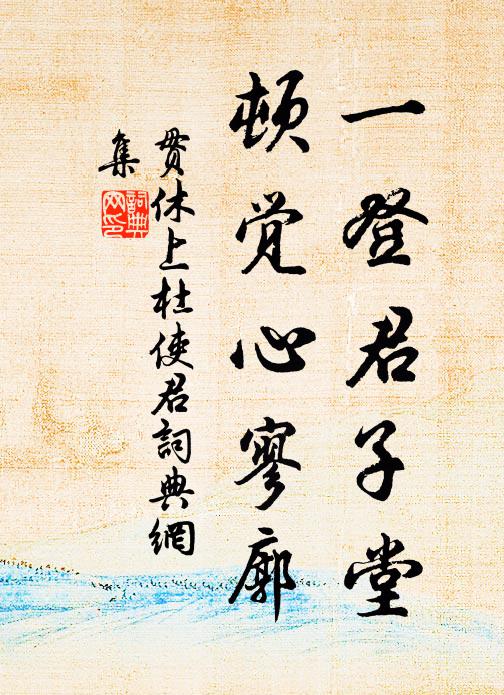 一登君子堂
顿觉心寥廓
贯休上杜使君詞典網
集
詞典
网印